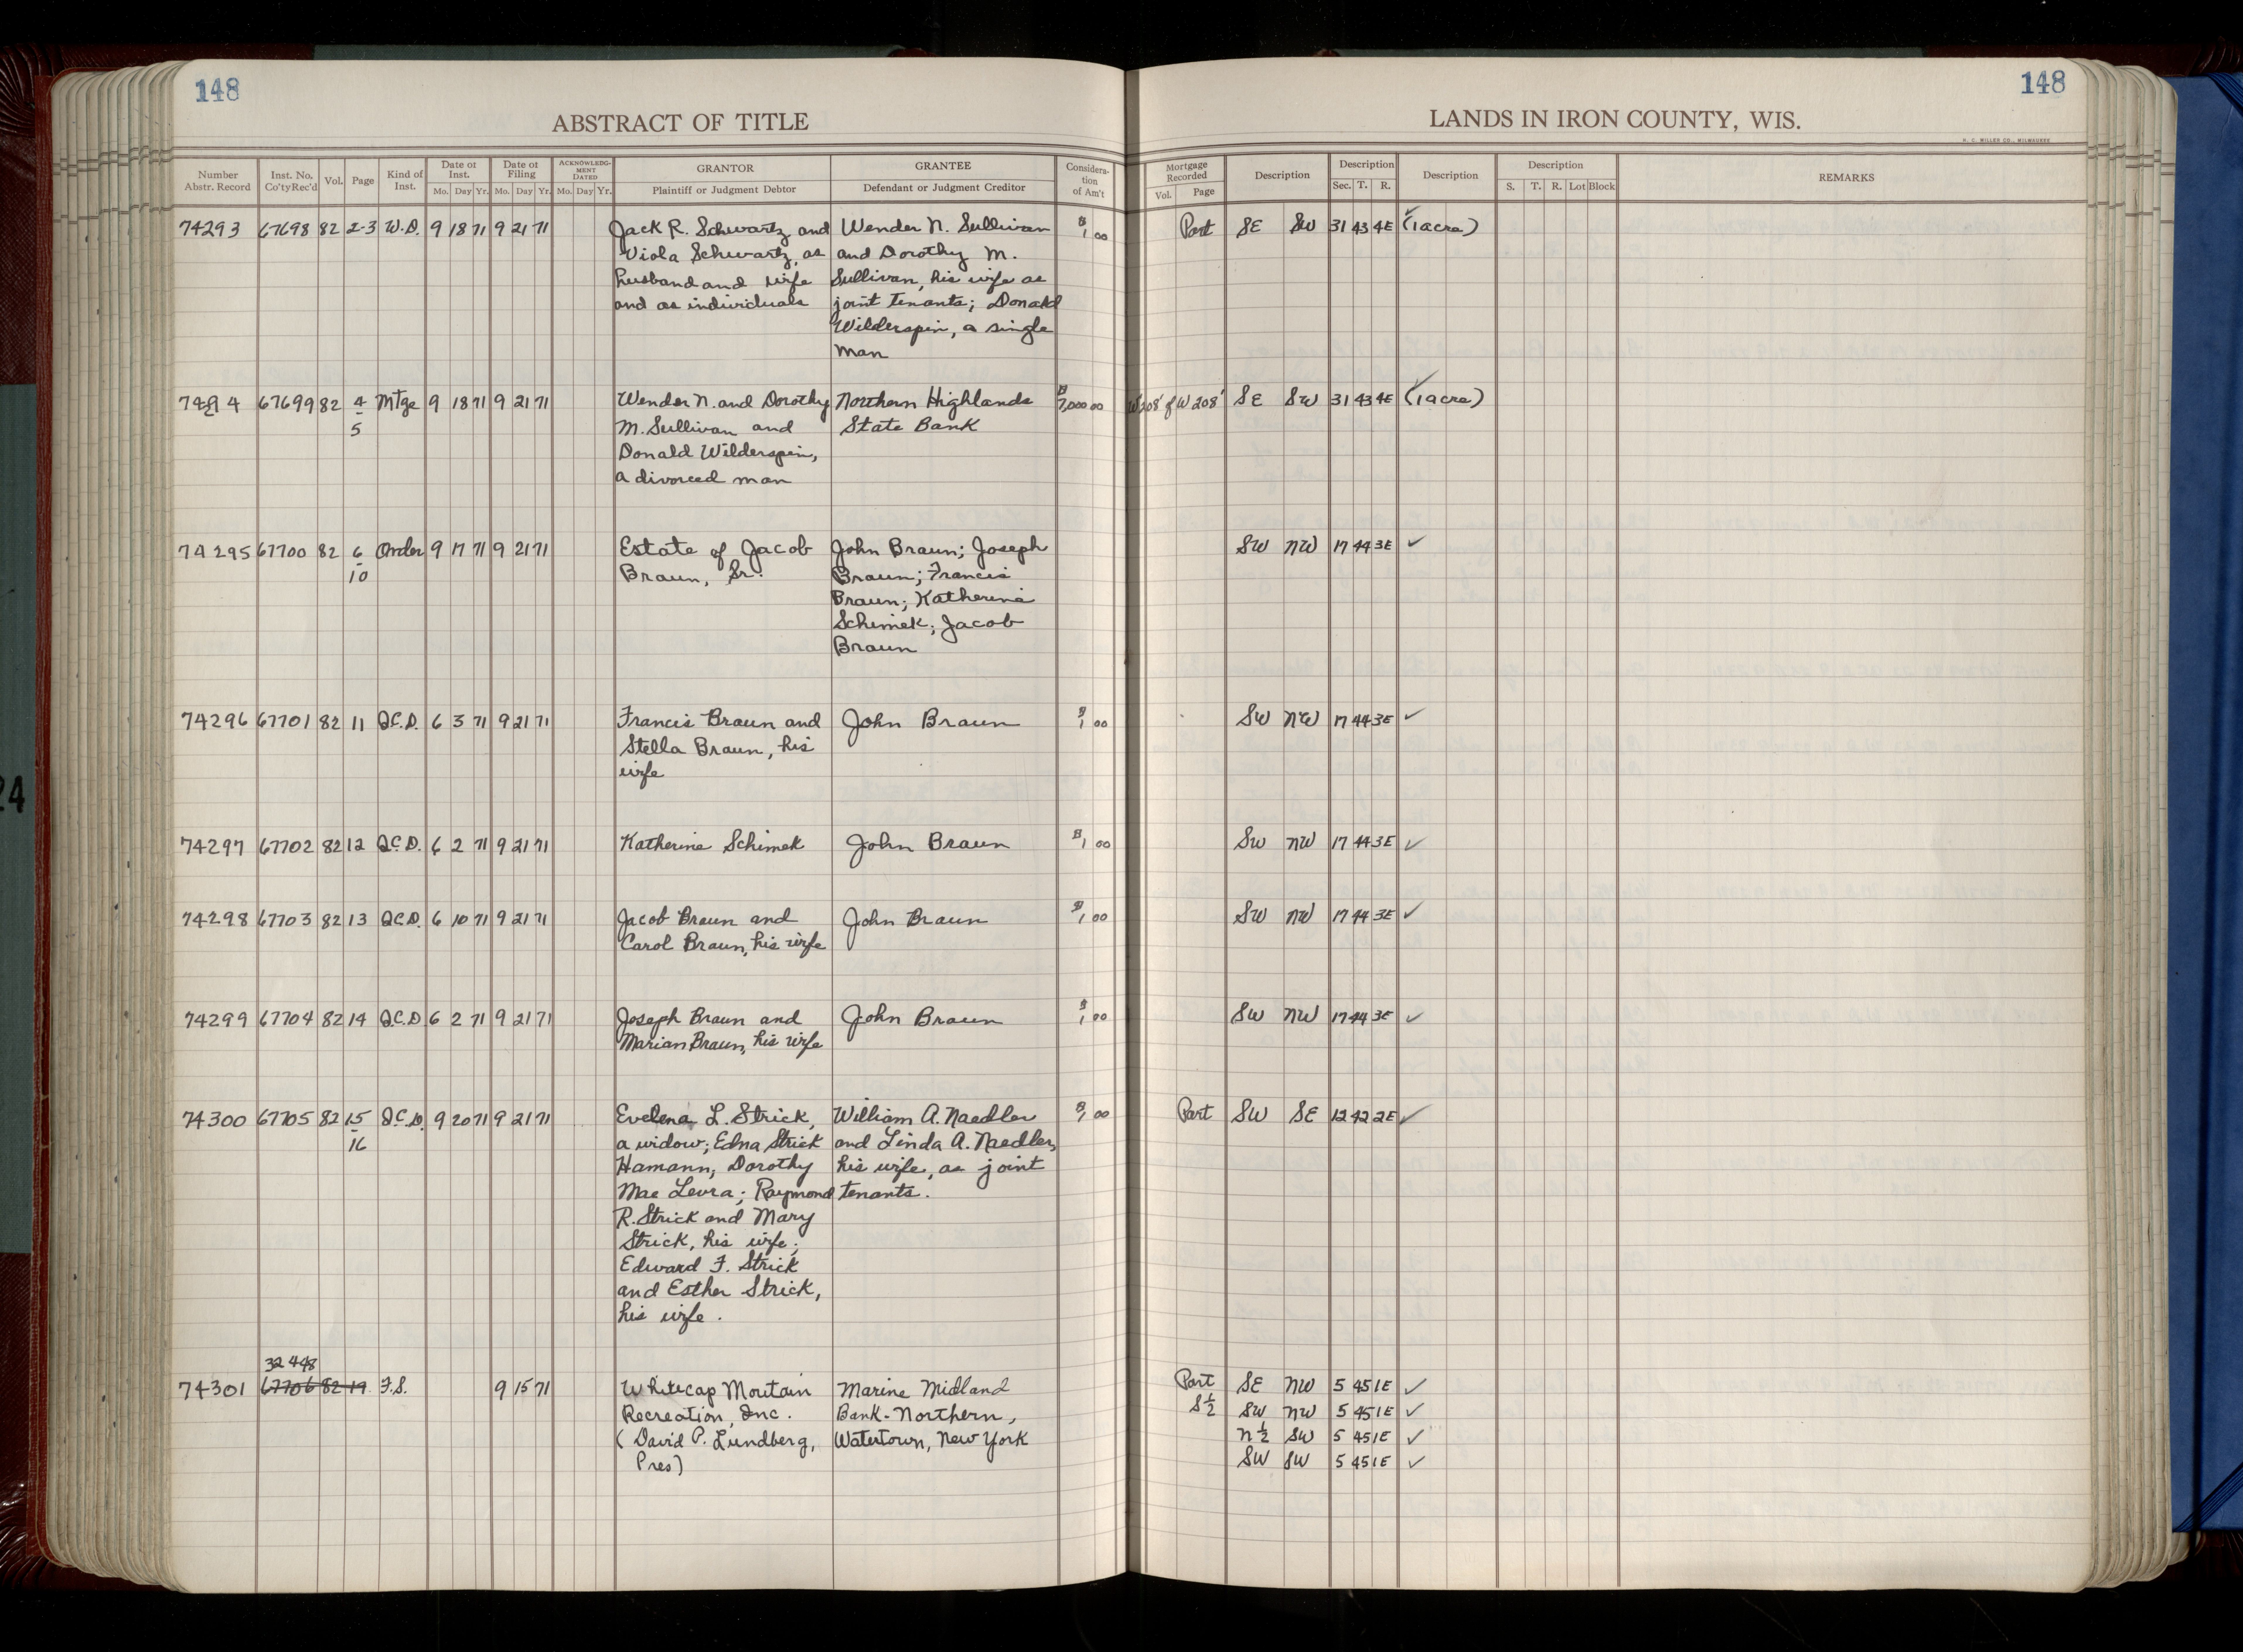 148
148
ABSTRACT OF TITLE
LANDS IN IRON COUNTY, WIS.
H. C. MILLER CO., MILWAUKEE
Number Abstr. Record | Inst. No. Co'ty Rec'd | Vol. | Page | Kind of Inst. | Date of Inst. Mo. Day Yr. | Date of Filing Mo. Day Yr. | ACKNOWLEDGMENT DATED Mo. Day Yr. | GRANTOR Plaintiff or Judgment Debtor | GRANTEE Defendant or Judgment Creditor | Consideration of Am't | Mortgage Recorded Vol. Page | Description | Description Sec. T. R. | Description | Description S. T. R. Lot Block | REMARKS
74293 67698 82 2-3 W.D. 9 18 71 9 21 71 Jack R. Schwartz and Wender N. Sullivan $1 00 Part SE SW 31 43 4E ✓ (1 acre)
Viola Schwartz, as and Dorothy M.
husband and wife Sullivan, his wife as
and as individuals joint tenants; Donald
Wilderspin, a single
man
74294 67699 82 4 Mtge 9 18 71 9 21 71 Wender N. and Dorothy Northern Highlands $7,000 00 W 208' of W 208' SE SW 31 43 4E ✓ (1 acre)
5 M. Sullivan and State Bank
Donald Wilderspin,
a divorced man
74295 67700 82 6 Order 9 17 71 9 21 71 Estate of Jacob John Braun; Joseph SW NW 17 44 3E ✓
10 Braun, Sr. Braun; Francis
Braun; Katherine
Schimek; Jacob
Braun
74296 67701 82 11 Q.C.D. 6 3 71 9 21 71 Francis Braun and John Braun $1 00 SW NW 17 44 3E ✓
Stella Braun, his
wife
74297 67702 82 12 Q.C.D. 6 2 71 9 21 71 Katherine Schimek John Braun $1 00 SW NW 17 44 3E ✓
74298 67703 82 13 Q.C.D. 6 10 71 9 21 71 Jacob Braun and John Braun $1 00 SW NW 17 44 3E ✓
Carol Braun, his wife
74299 67704 82 14 Q.C.D 6 2 71 9 21 71 Joseph Braun and John Braun $1 00 SW NW 17 44 3E ✓
Marian Braun, his wife
74300 67705 82 15 Q.C.D. 9 20 71 9 21 71 Evelena L. Strick, William A. Naedler $1 00 Part SW SE 12 42 2E ✓
16 a widow; Edna Strick and Linda A. Naedler,
Hamann; Dorothy his wife, as joint
Mae Levra; Raymond tenants.
R. Strick and Mary
Strick, his wife;
Edward F. Strick
and Esther Strick,
his wife.
32448
74301 67706 82 17 F.S. 9 15 71 Whitecap Moutain Marine Midland Part SE NW 5 45 1E ✓
Recreation, Inc. Bank-Northern, S½ SW NW 5 45 1E ✓
(David P. Lundberg, Watertown, New York N½ SW 5 45 1E ✓
Pres) SW SW 5 45 1E ✓
24